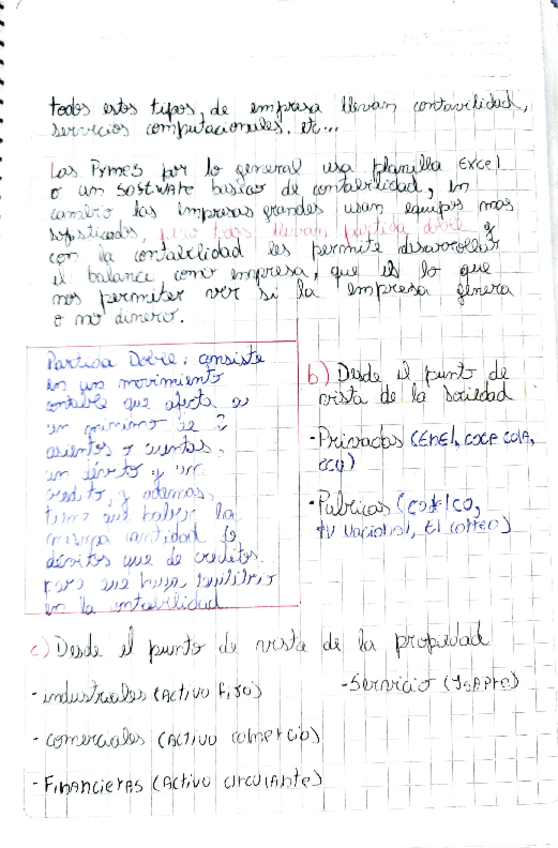 todos estos tipos, de empresa llevan contavilidad,
servicios computacionales. etc...
Las Pymes por lo general usa planilla Excel
o um software basicas de contabilidad, in
cambio las impresas grandes usam equipos mas
sofisticados, pero todas llevan partida doble y
con la contabilidad les permite desarrollar
il balance como empresa, que es lo que
nos permiter ver si la empresa genera
o no dinero.
Partida Doble: consiste
en un movimiento
contable que afecta a
un minimo de 2
asientos o cuentas,
un débito y un
credito, y ademas,
tiene que haber la
misma cantidad de
débitos que de creditos.
para que haya equilibrio
en la contabilidad
b) Desde il punto de
vista de la sociedad
- Privadas (Enel, coca cola,
ccu)
- Publicas (codelco,
tv Nacional, El correo)
c) Desde el punto de vista de la propiedad
- industriales (Activo fijo)
- Servicio (Isapre)
- comerciales (Activo comercio)
- Financieras (Activo circulante)